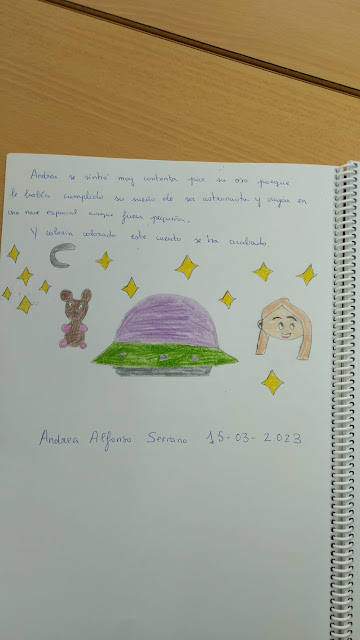 Andrea se sintió muy contenta por su oso porque
le había cumplido su sueño de ser astronauta y viajar en
una nave espacial aunque fuera pequeña.
Y colorín colorado este cuento se ha acabado.
Andrea Alfonso Serrano 15-03-2.023